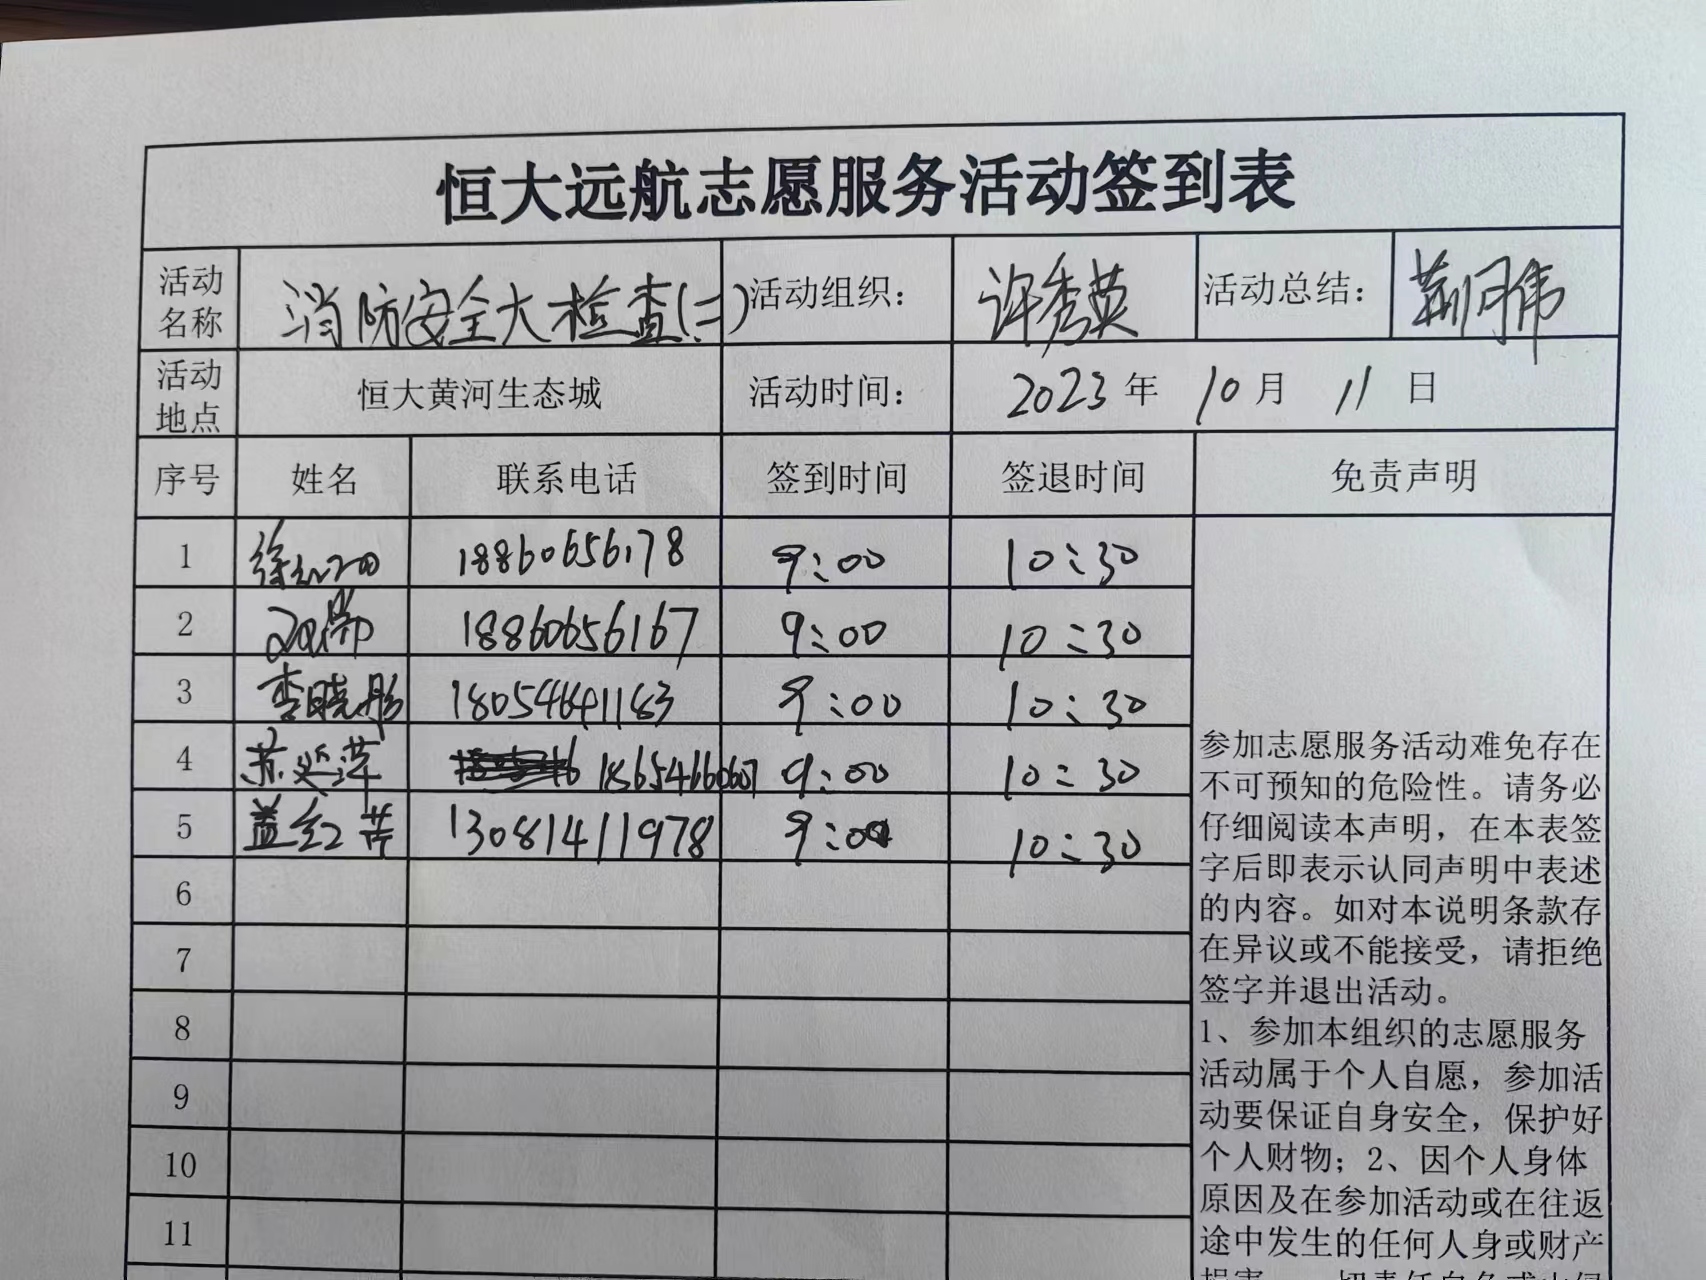 恒大远航志愿服务活动签到表
活动名称 消防安全大检查(二) 活动组织： 许秀英 活动总结： 荆同伟
活动地点 恒大黄河生态城 活动时间： 2023年 10月 11日
序号 姓名 联系电话 签到时间 签退时间 免责声明
1 18860656178 9:00 10:30
2 18860656167 9:00 10:30
3 李晓彤 18054641183 9:00 10:30
4 苏延萍 18654660607 9:00 10:30
5 盖红苗 13081411978 9:00 10:30
6
7
8
9
10
11
参加志愿服务活动难免存在
不可预知的危险性。请务必
仔细阅读本声明，在本表签
字后即表示认同声明中表述
的内容。如对本说明条款存
在异议或不能接受，请拒绝
签字并退出活动。
1、参加本组织的志愿服务
活动属于个人自愿，参加活
动要保证自身安全，保护好
个人财物；2、因个人身体
原因及在参加活动或在往返
途中发生的任何人身或财产